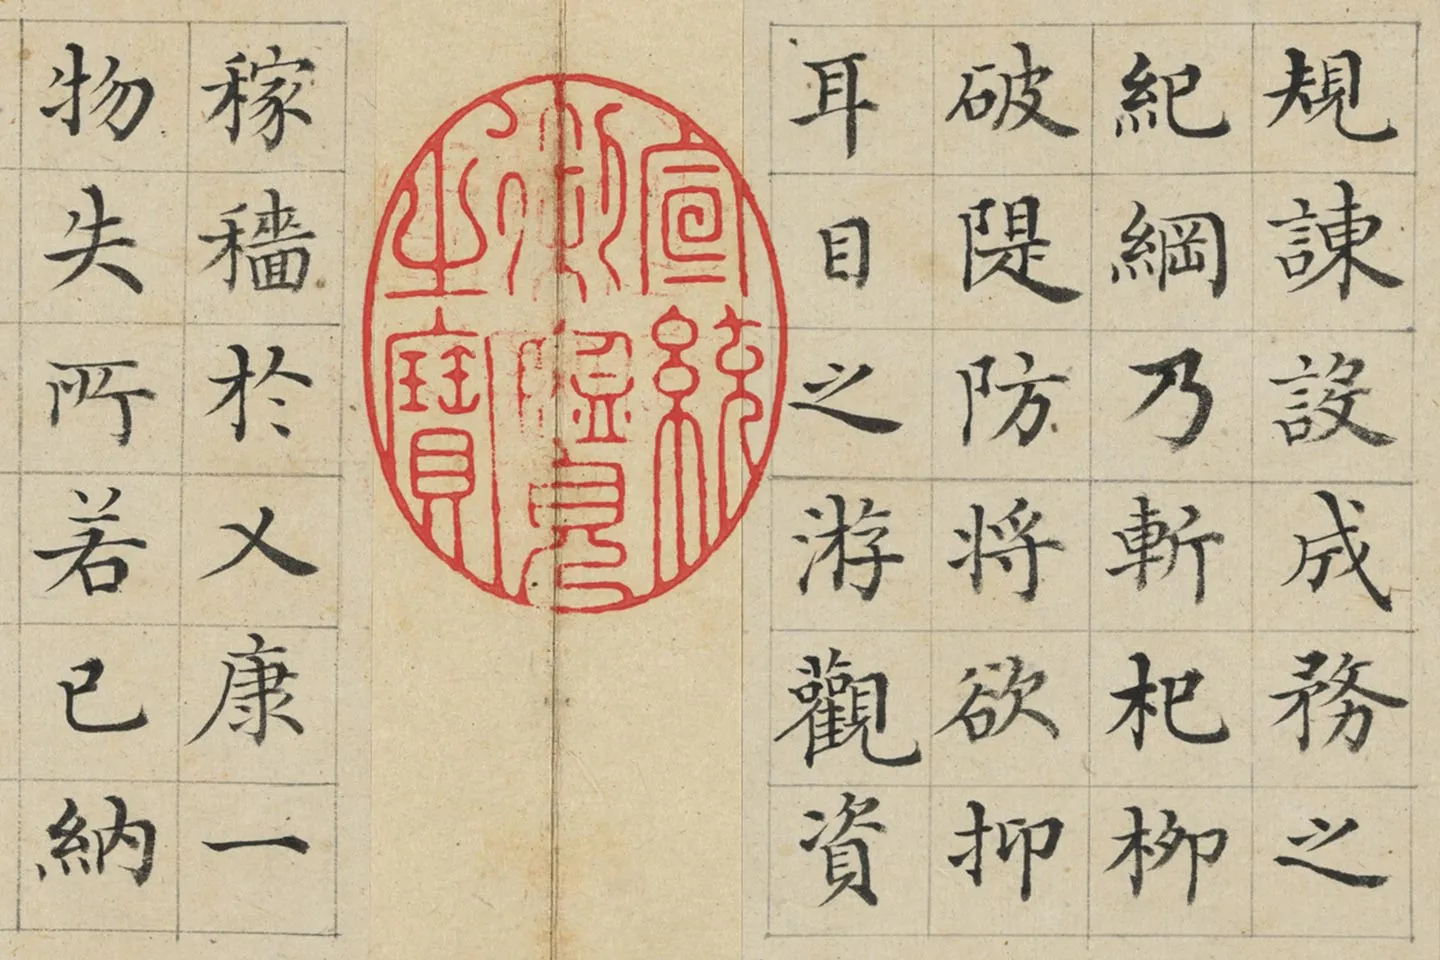 規諫設成務之
紀綱乃斬杞柳
破隄防将欲抑
耳目之游觀資
宣統
御覽
之寶
稼穡於乂康一
物失所若已納